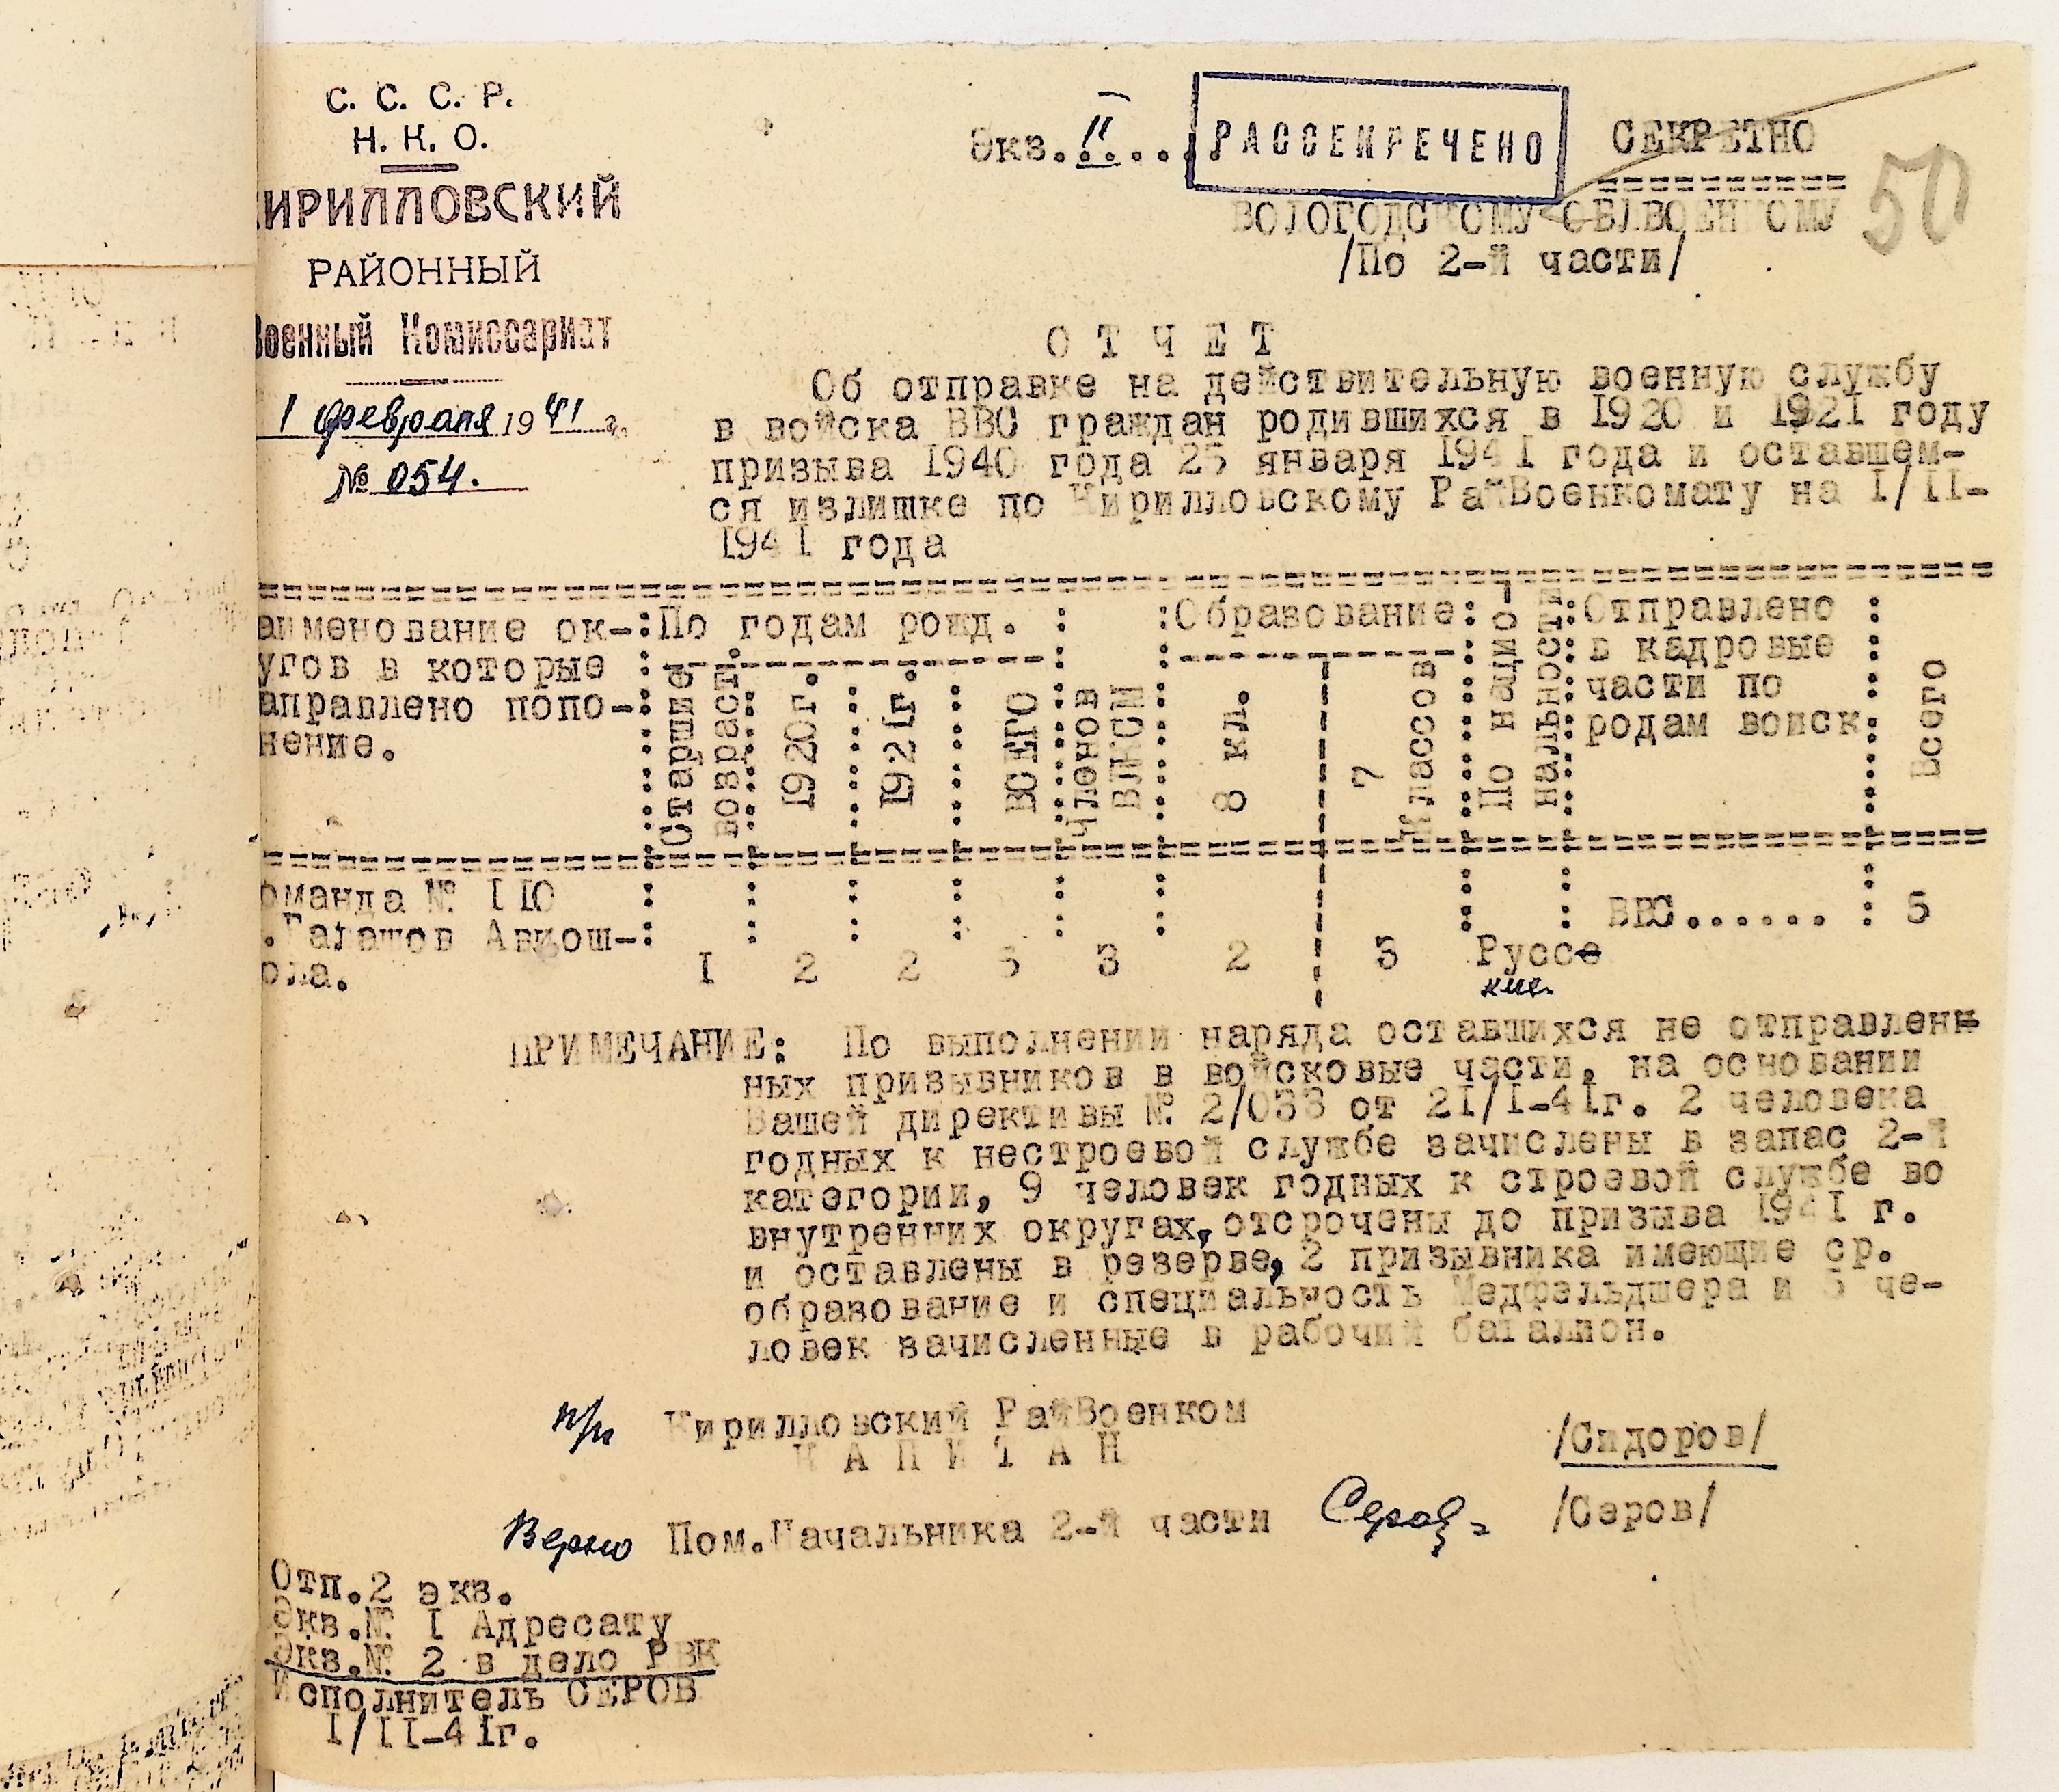 С. С. С. Р.
Н. К. О.
ИРИЛЛОВСКИЙ
РАЙОННЫЙ
Военный Комиссариат
1 февраля 1941 г.
№ 054.
Экз. II.....
РАССЕКРЕЧЕНО
СЕКРЕТНО
50
ВОЛОГОДСКОМУ ОБЛВОЕНКОМУ
/По 2-й части/
О Т Ч Е Т
Об отправке на действительную военную службу
в войска ВВС граждан родившихся в 1920 и 1921 году
призыва 1940 года 25 января 1941 года и оставшем-
ся излишке по Кирилловскому РайВоенкомату на I/II-
1941 года
аименование ок-
угов в которые
аправлено попо-
нение.
По годам рожд.
Старшие
возраст.
1920г.
1921г.
ВСЕГО
Членов
ВЛКСМ
Образование
8 кл.
7
Классов
По нацио-
нальности
Отправлено
в кадровые
части по
родам войск
Всего
оманда № 110
.Балашов Авиош-
ола.
I 2 2 5 3 2 3 Руссе
кие.
ВВС...... 5
ПРИМЕЧАНИЕ: По выполнении наряда оставшихся не отправленн
ных призывников в войсковые части, на основании
Вашей директивы № от 21/I-41г. 2 человека
годных к нестроевой службе зачислены в запас 2-й
категории, 9 человек годных к строевой службе во
внутренних округах, отсрочены до призыва 1941 г.
и оставлены в резерве, 2 призывника имеющие ср.
образование и специальность Медфельдшера и че-
ловек зачисленные в рабочий баталион.
п/п Кирилловский РайВоенком
К А П И Т А Н
/Сидоров/
Верно Пом.Начальника 2-й части Серов /Серов/
Отп.2 экз.
Экз.№ I Адресату
Экз.№ 2 в дело РВК
Исполнитель СЕРОВ
I/II-41г.